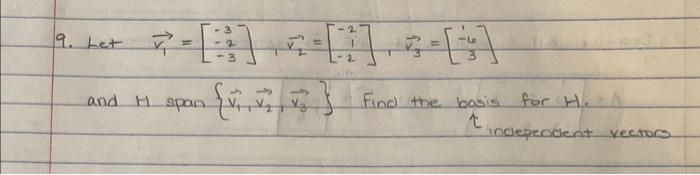 9. Let v₁ = [-3 -2 -3], v₂ = [-2 1 -2], v₃ = [1 -6 3]
and H span {v₁, v₂, v₃} Find the basis for H.
↑ independent vectors